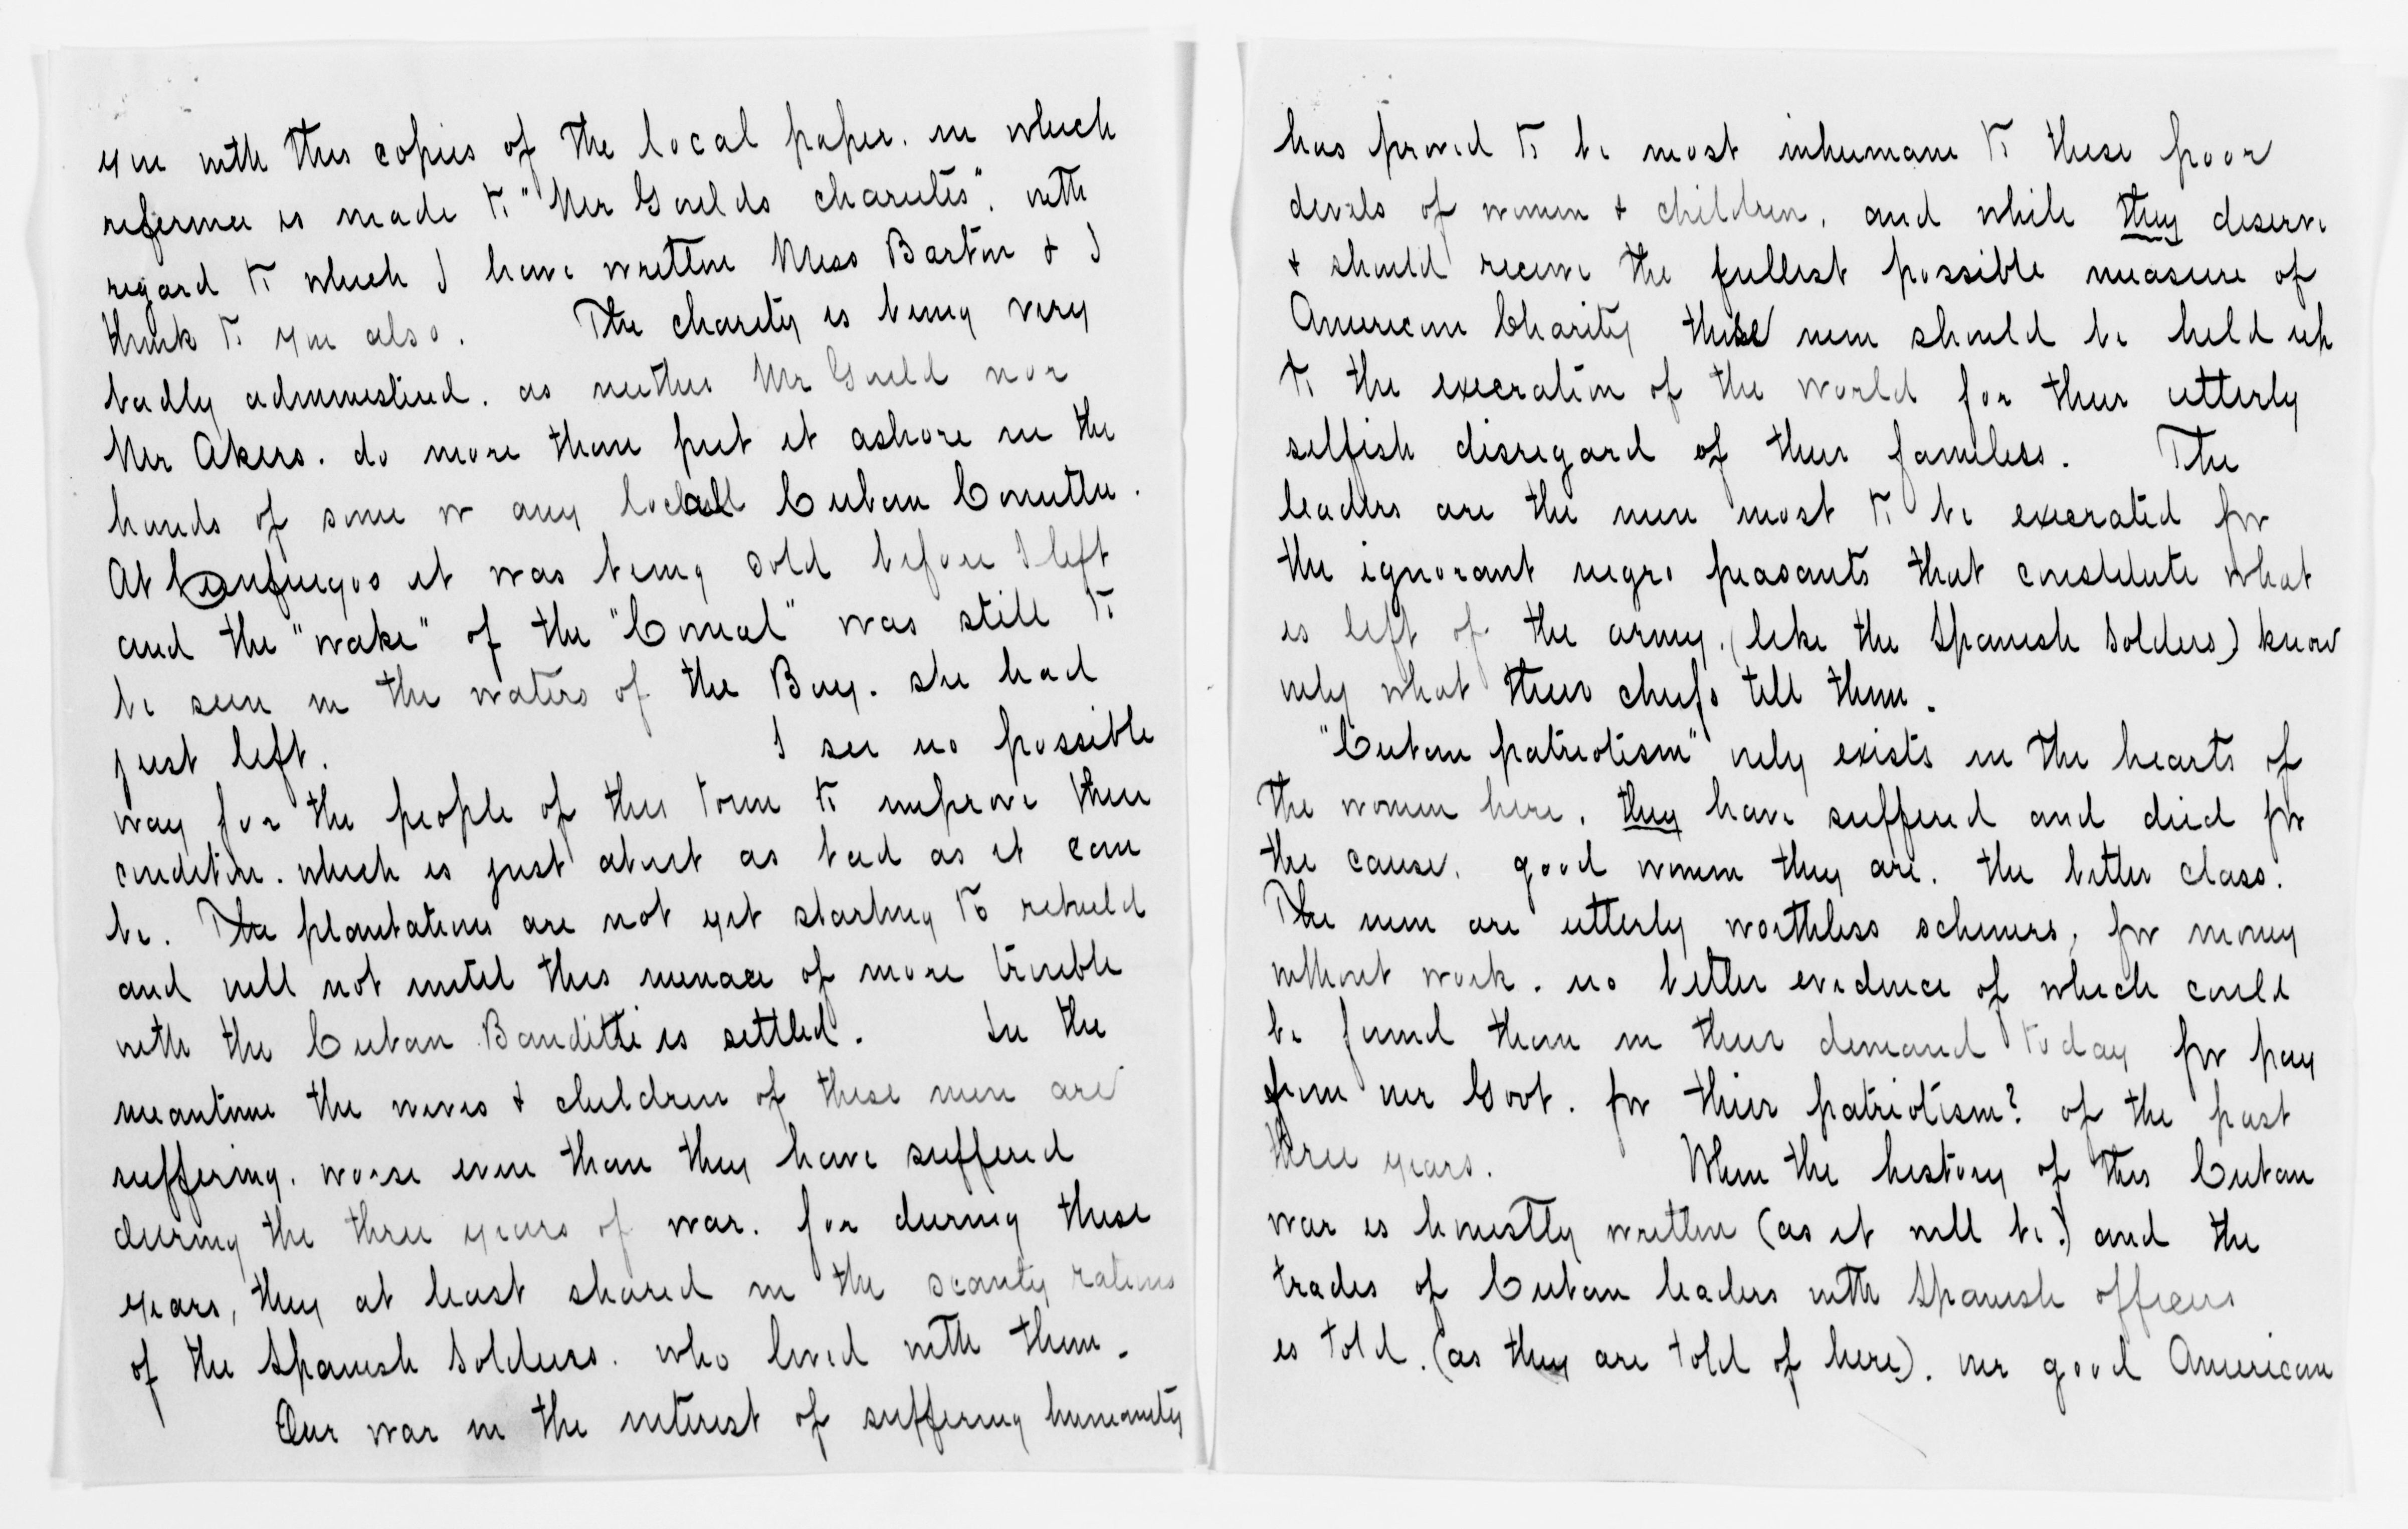 you with this copies of the local paper. in which
reference is made to "Mr Goulds charities". with
regard to which I have written Miss Barton & I
think to you also. The charity is being very
badly administered. as neither Mr Gould nor
Mr Akers. do more than put it ashore in the
hands of some or any local Cuban Comittee.
At Cienfuegos it was being sold before I left
and the "wake" of the "Comal" was still to
be seen in the waters of the Bay. she had
just left. I see no possible
way for the people of this town to improve their
condition. which is just about as bad as it can
be. The plantations are not yet starting to rebuild
and will not until this menace of more trouble
with the Cuban Banditti is settled. In the
meantime the wives & children of these men are
suffering. worse even than they have suffered
during the three years of war. for during these
years, they at least shared in the scanty rations
of the Spanish Soldiers. who lived with them.
Our war in the interest of suffering humanity
has proved to be most inhumane to these poor
devils of women & children, and while they deserve
& should receive the fullest possible measure of
American Charity these men should be held up
to the execration of the world for their utterly
selfish disregard of their families. The
leaders are the men most to be execrated for
the ignorant negro peasants that constitute what
is left of the army, (like the Spanish Soldiers) know
only what their chiefs tell them.
"Cuban patriotism" only exists in the hearts of
the women here, they have suffered and died for
the cause. good women they are. the better class.
The men are utterly worthless schemers, for money
without work. no better evidence of which could
be found than in their demand today for pay
from our Govt. for thier patriotism? of the past
three years. When the history of this Cuban
war is honestly written (as it will be.) and the
trades of Cuban leaders with Spanish officers
is told. (as they are told of here). our good American